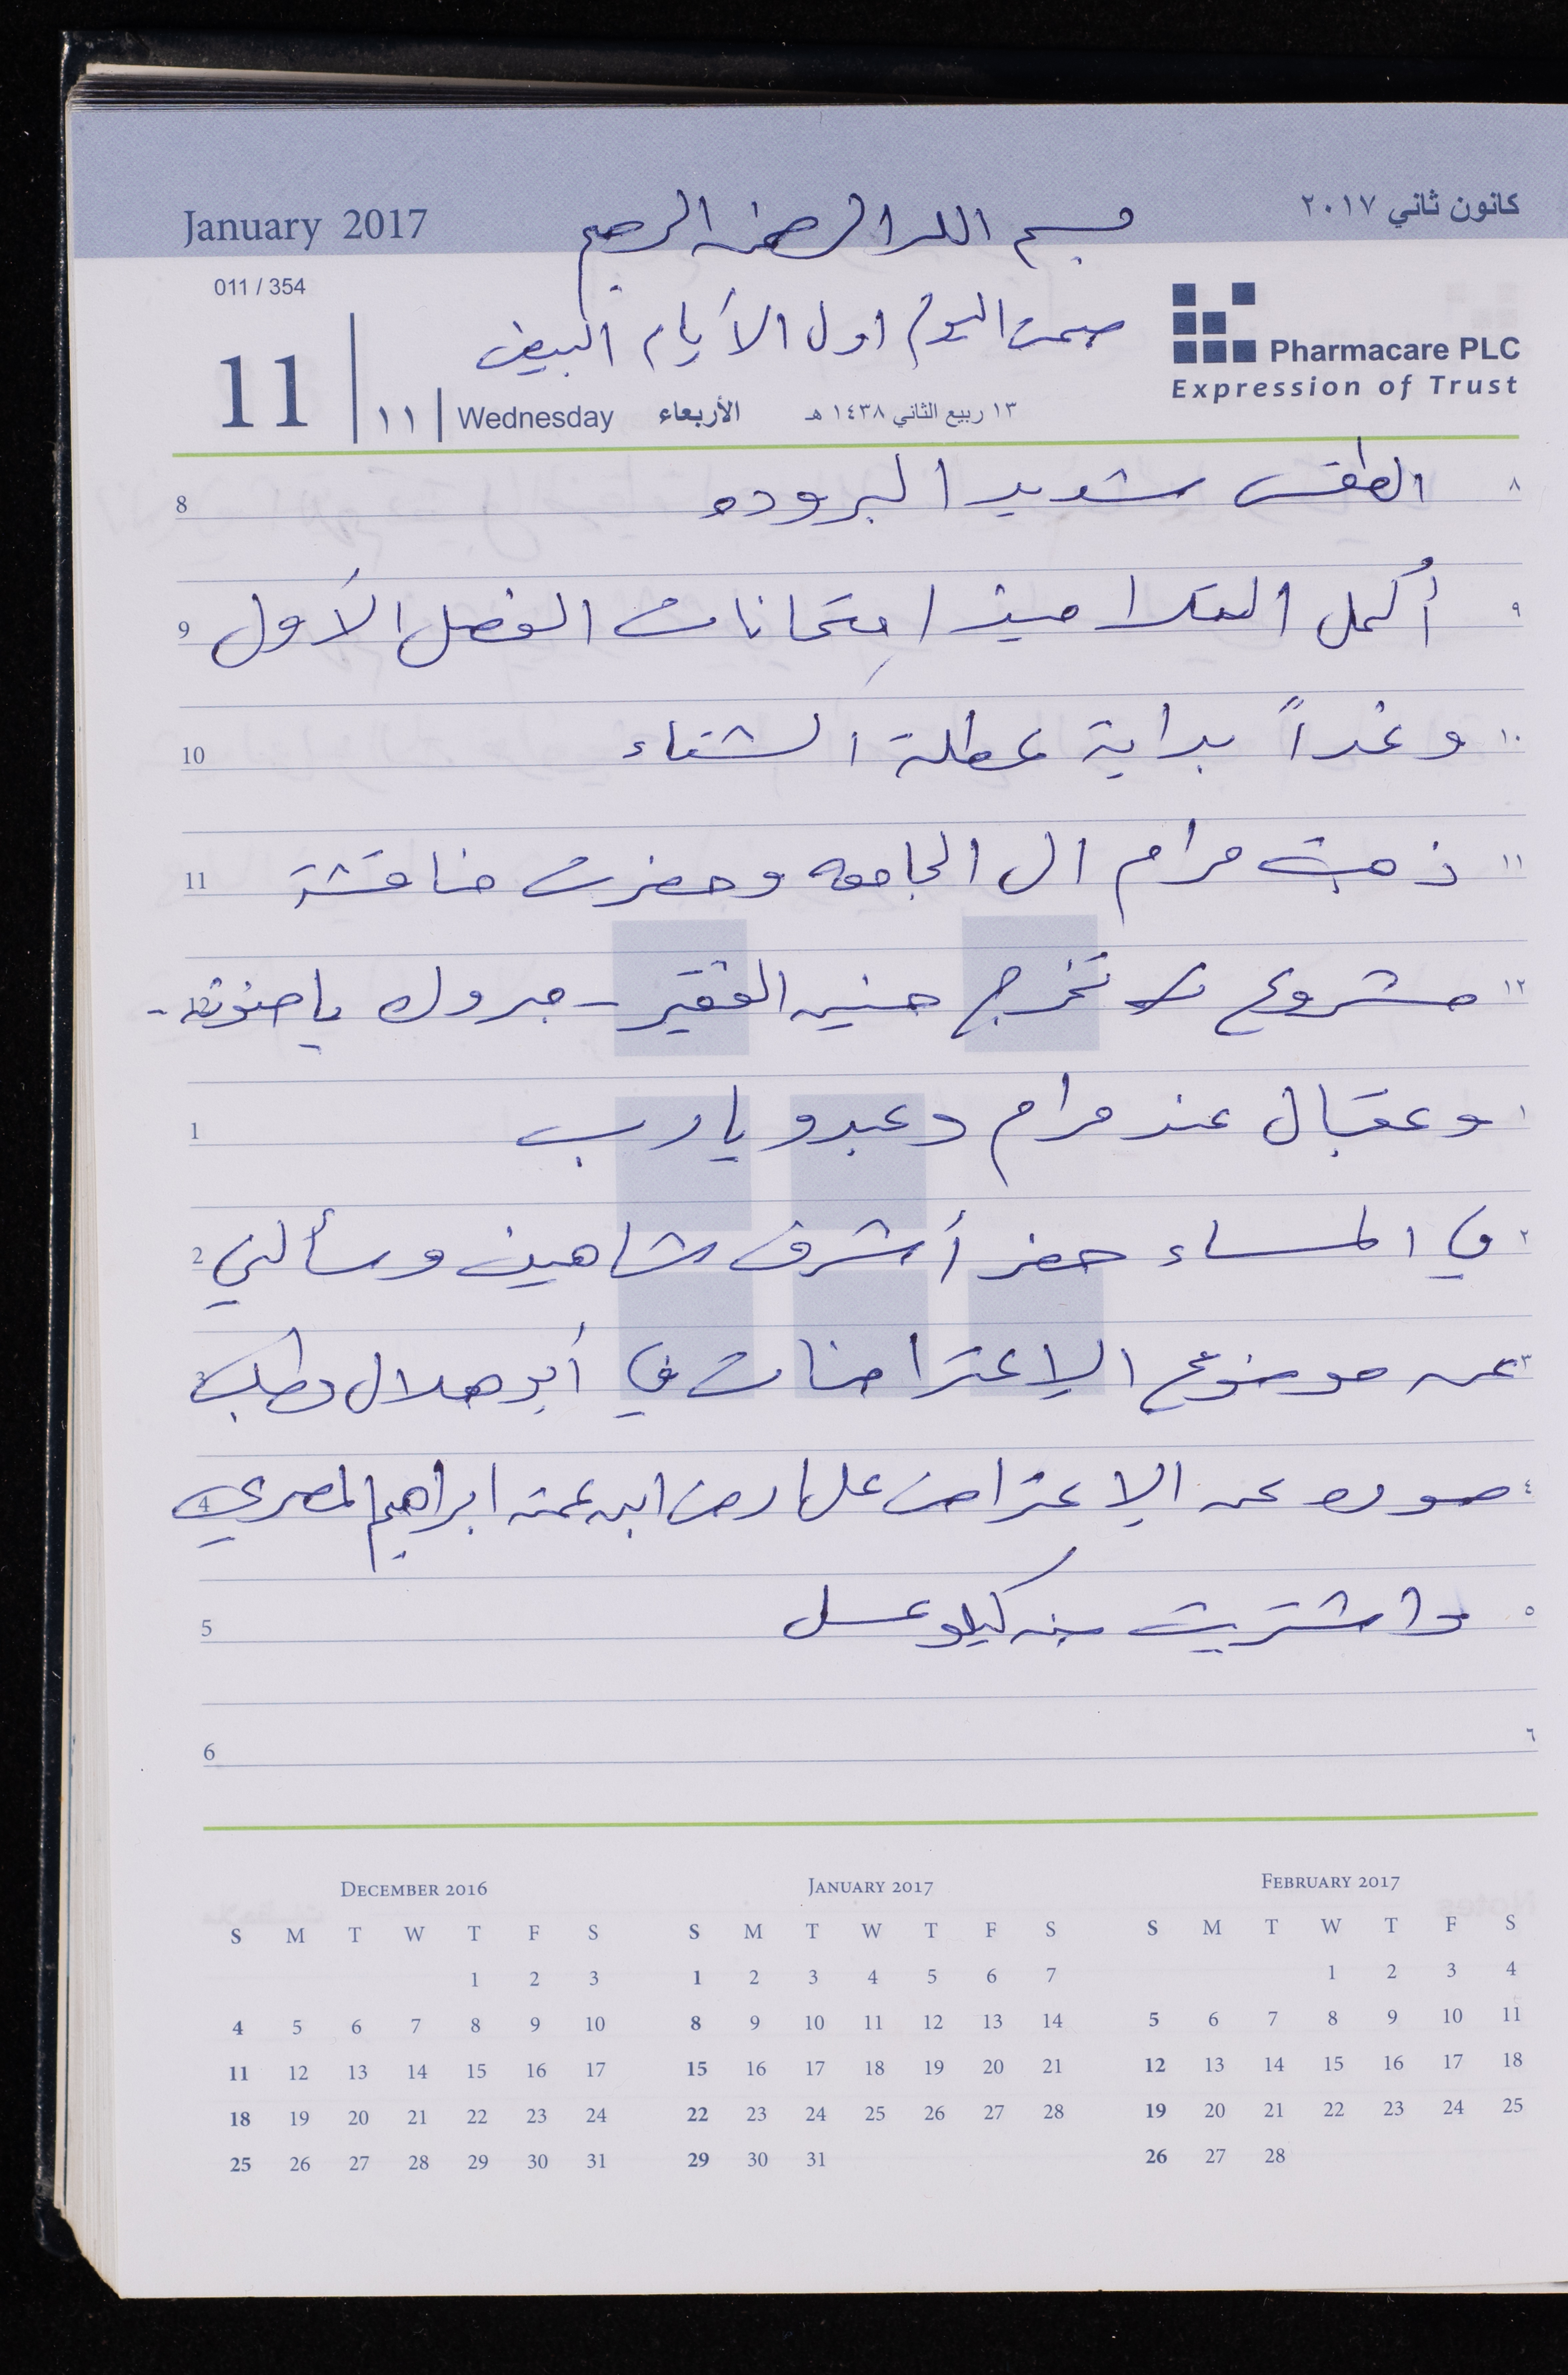 January 2017
بسم الله الرحمن الرحيم
كانون ثاني ٢٠١٧
011 / 354
صمت اليوم اول الأيام البيض
Pharmacare PLC
Expression of Trust
11 ١١ Wednesday الأربعاء ١٣ ربيع الثاني ١٤٣٨ هـ
8 الطقس شديد البروده ٨
9 أكمل التلاميذ إمتحانات الفصل الأول ٩
10 وغداً بداية عطلة الشتاء ١٠
11 ذهبت مرام الى الجامعه وحضرت مناقشة ١١
12 مشروع تخرج حنين الفقير - مبروك يا حنونه - ١٢
1 وعقبال عند مرام وعبدو يا رب ١
2 في المساء حضر أشرف شاهين وسألني ٢
3 عن موضوع الإعتراضات في أبو هلال وطلب ٣
4 صوره عن الإعتراض على ارض ابن عمته ابراهيم المصري ٤
5 واشتريت منه كيلو عسل ٥
6 ٦
December 2016
S M T W T F S
1 2 3
4 5 6 7 8 9 10
11 12 13 14 15 16 17
18 19 20 21 22 23 24
25 26 27 28 29 30 31
January 2017
S M T W T F S
1 2 3 4 5 6 7
8 9 10 11 12 13 14
15 16 17 18 19 20 21
22 23 24 25 26 27 28
29 30 31
February 2017
S M T W T F S
1 2 3 4
5 6 7 8 9 10 11
12 13 14 15 16 17 18
19 20 21 22 23 24 25
26 27 28